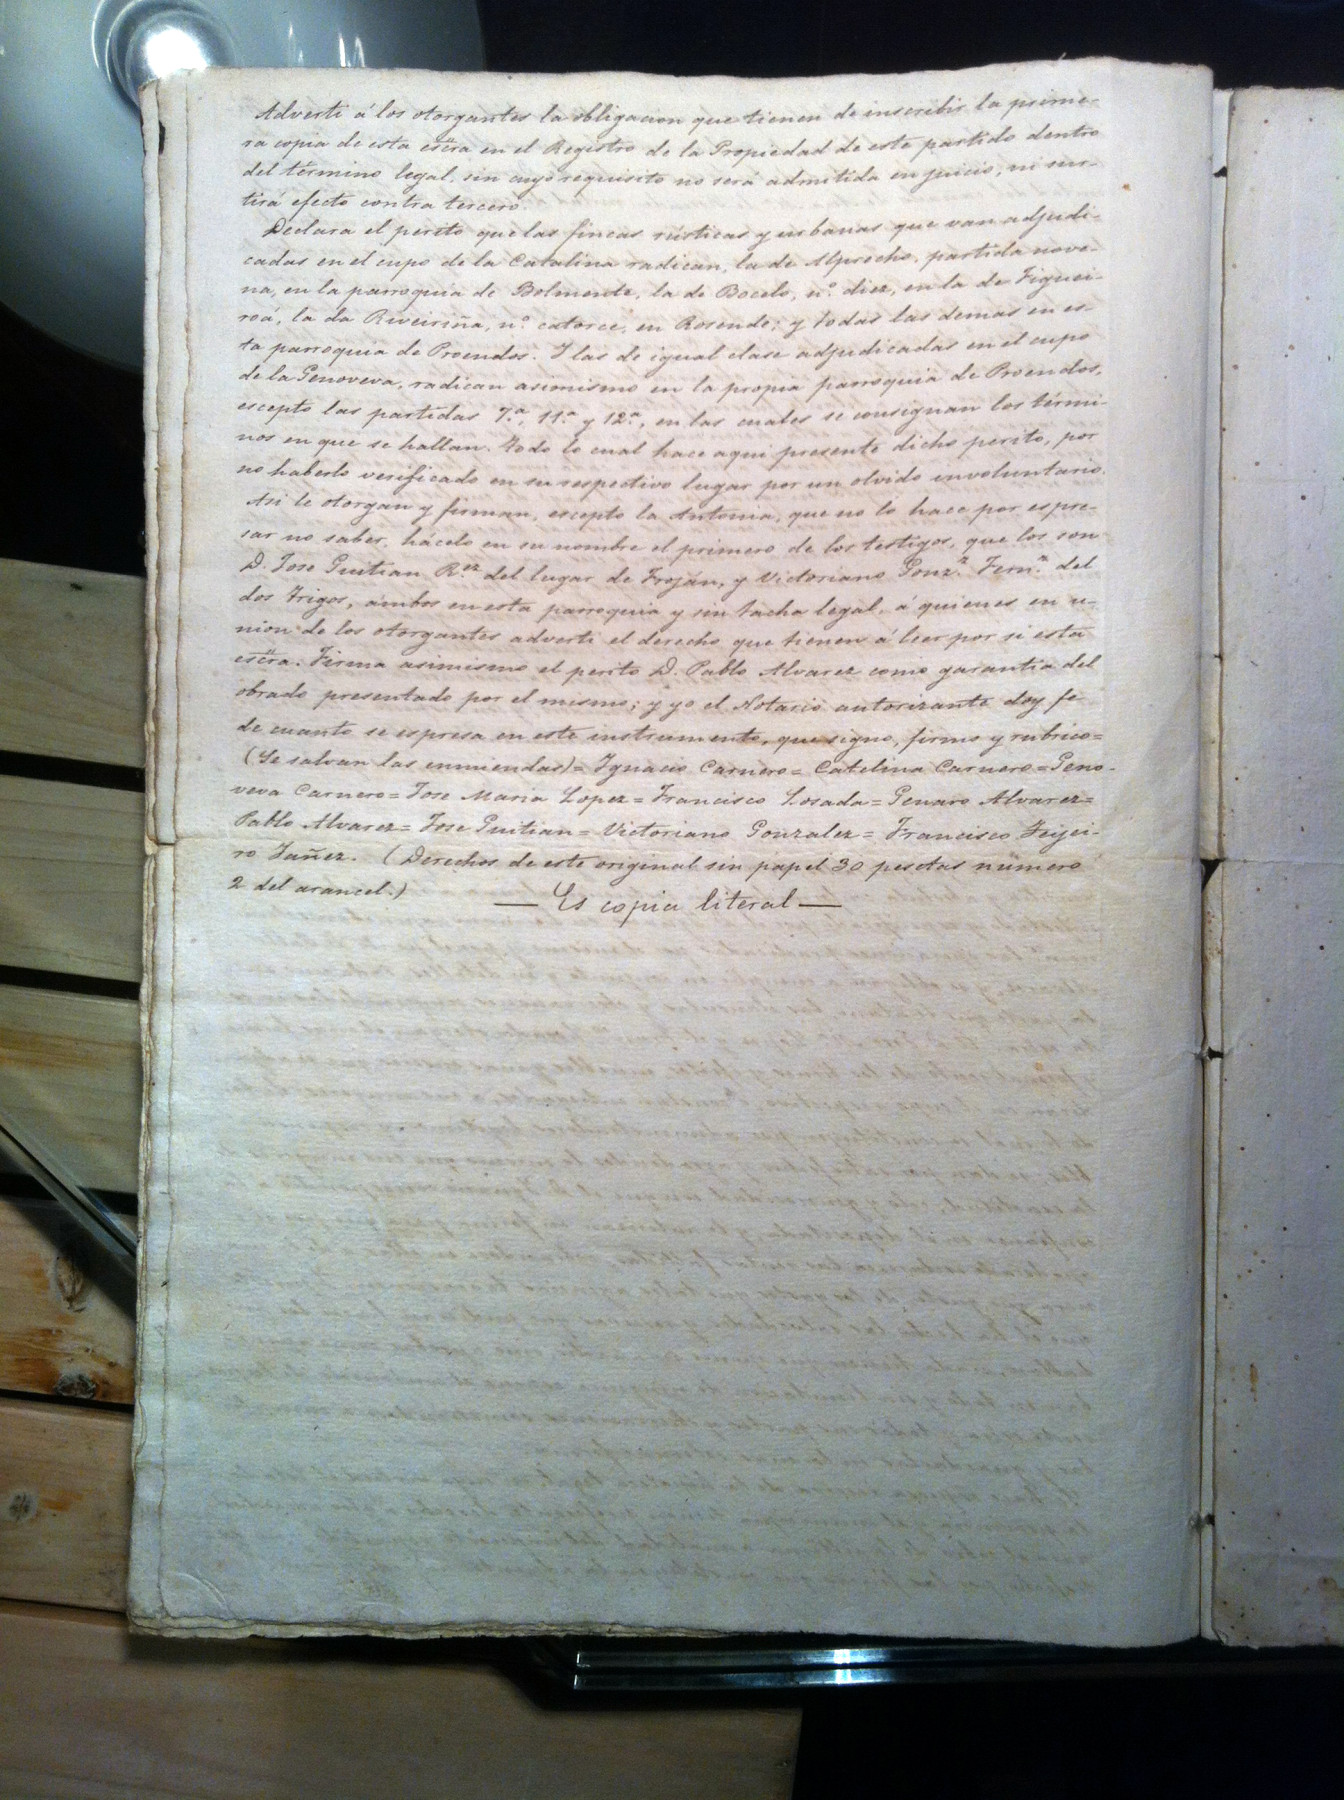 Adverti á los otorgantes la obligacion que tienen de inscribir la prime-
ra copia de esta escra en el Registro de la Propiedad de este partido dentro
del término legal, sin cuyo requisito no será admitida en juicio, ni sur-
tirá efecto contra tercero.
Declara el perito que las fincas rústicas y urbanas que van adjudi-
cadas en el cupo de la Catalina radican, la de Alprecho, partida nove-
na, en la parroquia de Bolmente, la de Bocelo, nº. diez, en la de Figuei-
roá, la da Riveiriña, nº. catorce, en Rosende; y todas las demas en es-
ta parroquia de Proendos. Y las de igual clase adjudicadas en el cupo
de la Genoveva, radican asimismo en la propia parroquia de Proendos,
escepto las partidas 7.ª, 11.ª y 12.ª, en las cuales se consignan los térmi-
nos en que se hallan. Todo lo cual hace aqui presente dicho perito, por
no haberlo verificado en su respectivo lugar por un olvido involuntario.
Asi lo otorgan y firman, escepto la Antonia, que no lo hace por espre-
sar no saber, hácelo en su nombre el primero de los testigos, que los son
D. Jose Guitian R.ez del lugar de Froján, y Victoriano Gonz.z Fern.z del
dos Trigos, ámbos en esta parroquia y sin tacha legal, á quienes en u-
nion de los otorgantes adverti el derecho que tienen á leer por si esta
escra. Firma asimismo el perito D. Pablo Alvarez como garantia del
obrado presentado por el mismo; y yo el Notario autorizante doy fe
de cuanto se espresa en este instrumento, que signo, firmo y rubrico=
(Se salvan las enmiendas)= Ygnacio Carnero= Catalina Carnero= Geno-
veva Carnero= Jose Maria Lopez= Francisco Losada= Genaro Alvarez=
Pablo Alvarez= Jose Guitian= Victoriano Gonzalez= Francisco Feijei-
ro Yañez. (Derechos de este original sin papel 30 pesetas número
2 del arancel.)
— Es copia literal —